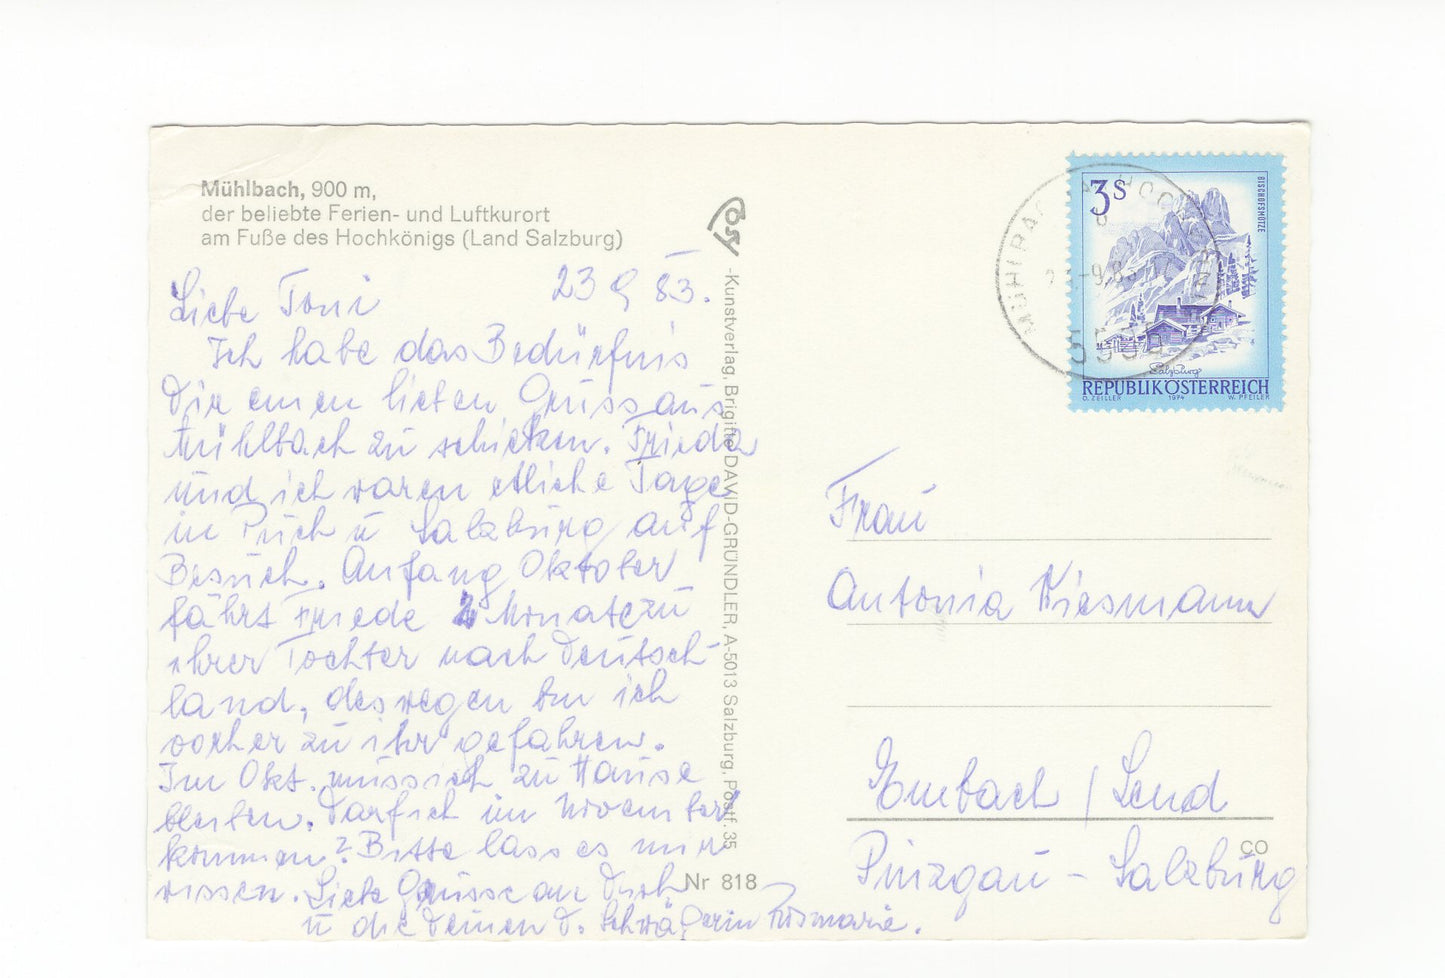 Mühlbach, 900 m,
der beliebte Ferien- und Luftkurort
am Fuße des Hochkönigs (Land Salzburg)
23 9 83.
Liebe Toni
Ich habe das Bedürfnis
Dir einen lieben Gruss aus
Mühlbach zu schicken. Frieda
und ich waren etliche Tage
in Puch u Salzburg auf
Besuch. Anfang Oktober
fährt Friede 2 Monate zu
ihrer Tochter nach Deutsch-
land, deswegen bin ich
vorher zu ihr gefahren.
Im Okt. muss ich zu Hause
bleiben. Darf ich im November
kommen? Bitte lass es mir
wissen. Liebe Grüsse an Dich
u die Deinen d. Schwägerin Rosmarie.
-Kunstverlag, Brigitte DAVID-GRÜNDLER, A-5013 Salzburg, Postf. 35
Nr 818
3S
BISCHOFSMÜTZE
Salzburg
REPUBLIK ÖSTERREICH
O. ZEILLER 1974 W. PFEILER
-9.83
Frau
Antonia Wiesmann
Embach / Lend
CO
Pinzgau - Salzburg